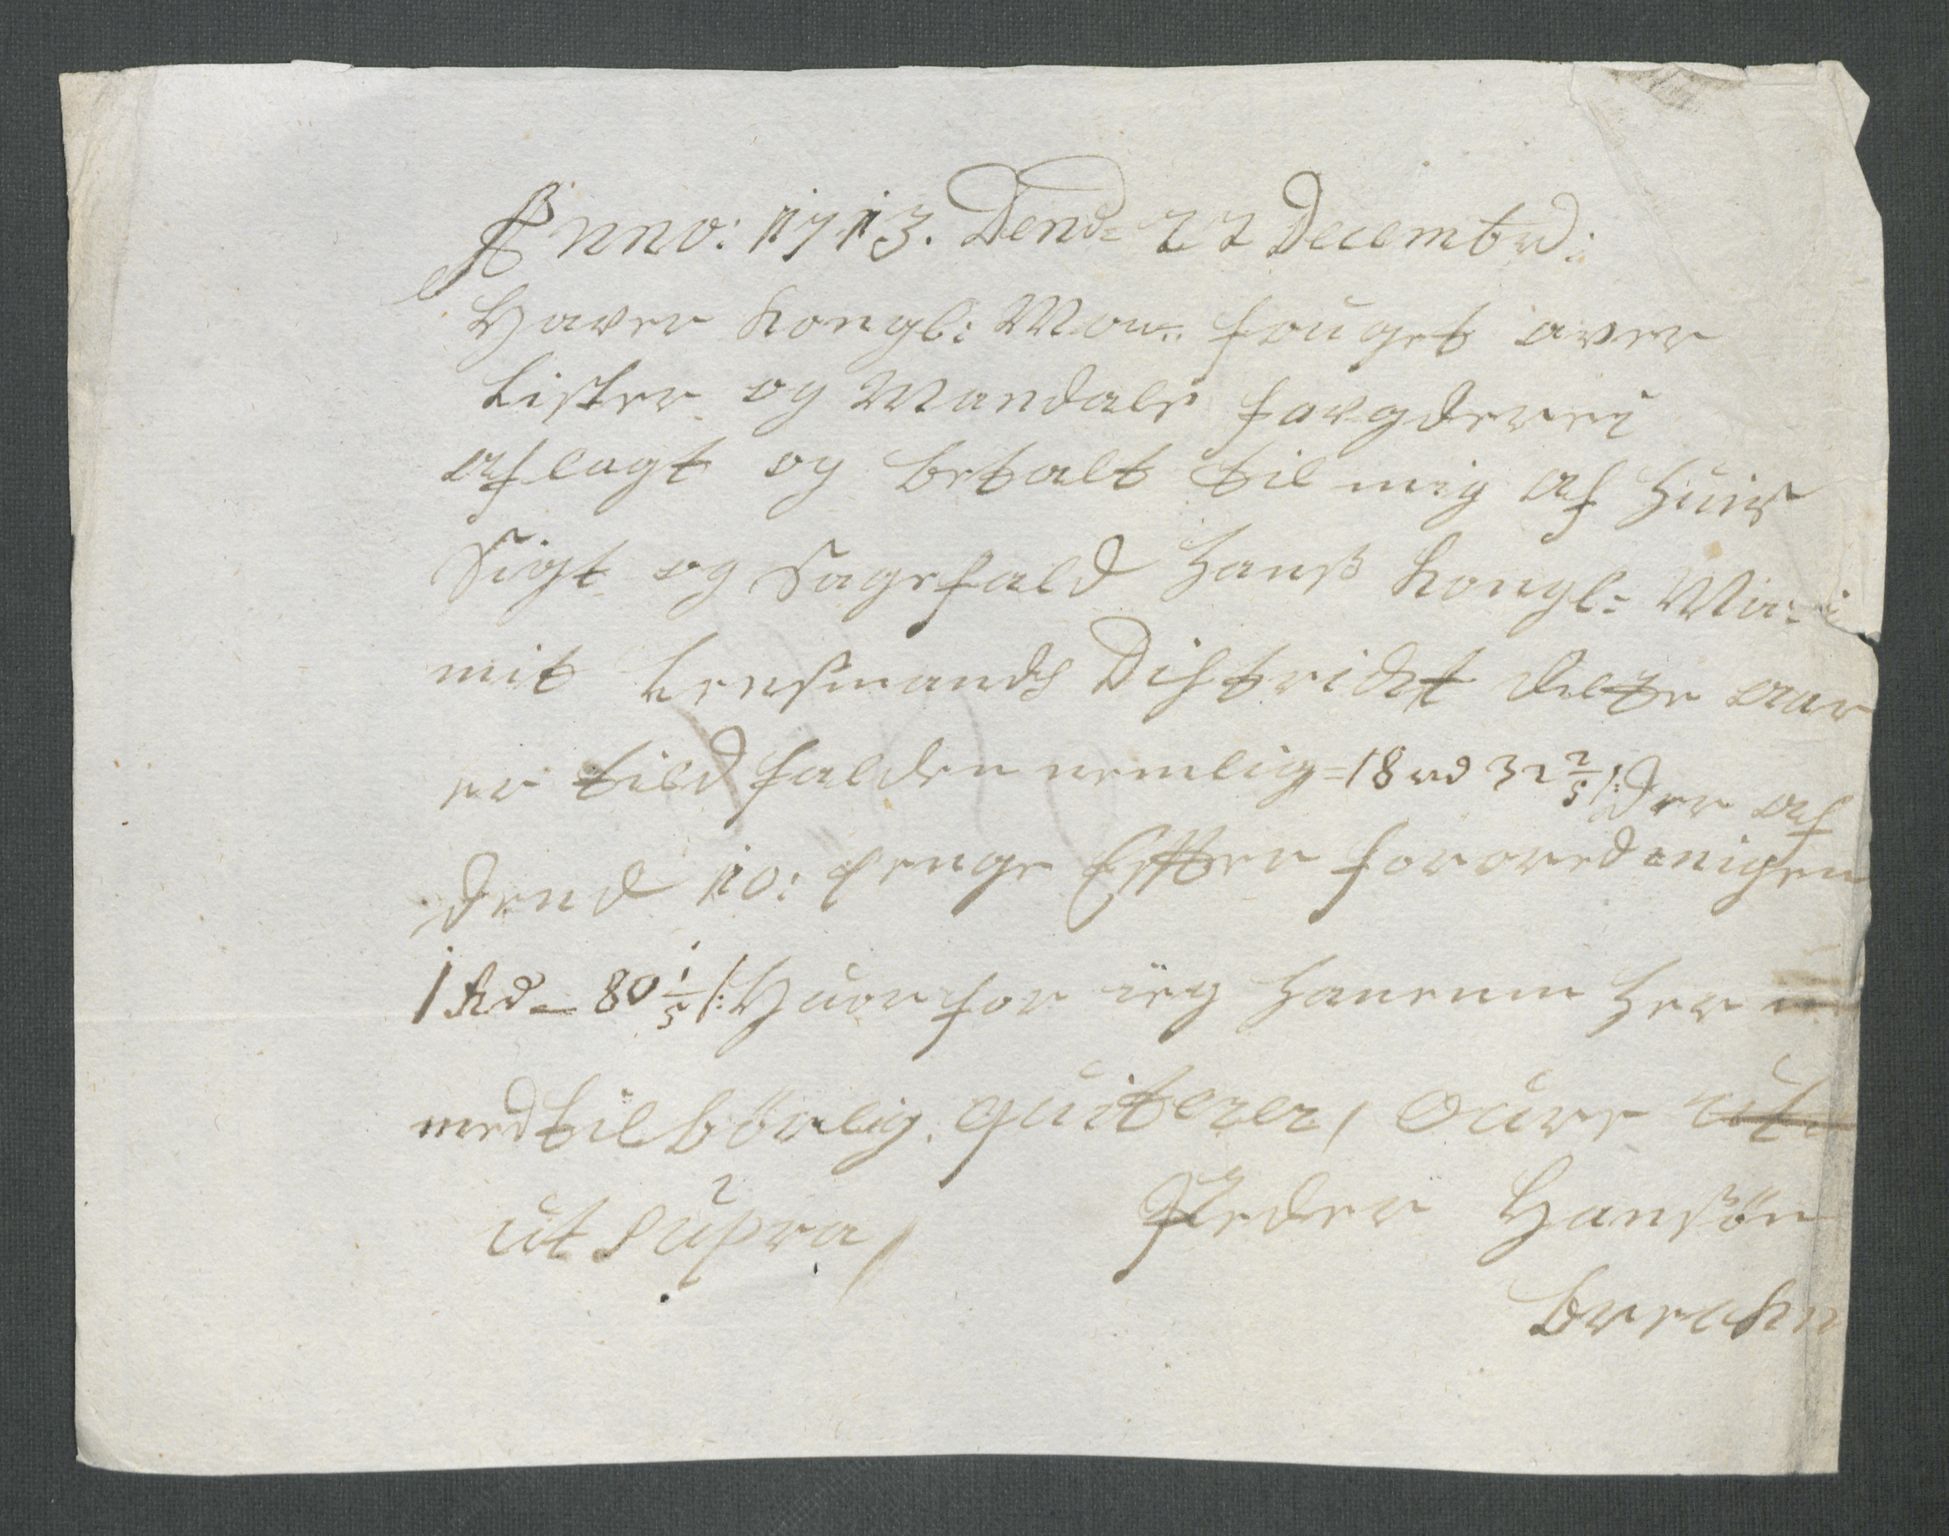 Anno: 1713. Dend= 22 Decembr:
Haver Kongl: May: fouget over
Lister og Mandals fougderei
aflagt og betalt til mig af huis
Sigt og Sagefald Hanß Kongl: May: i
mit Lensmands District dette aar
er tildfalden nemlig= 18 rd 32 2/5 /: der af
dend 10: penge Efter forordenigen
1 Rd – 80 1/5 /: Huorfor ieg hanenm her
med tilbørlig quiterer / Øure
ut supra / Peder Hansøn